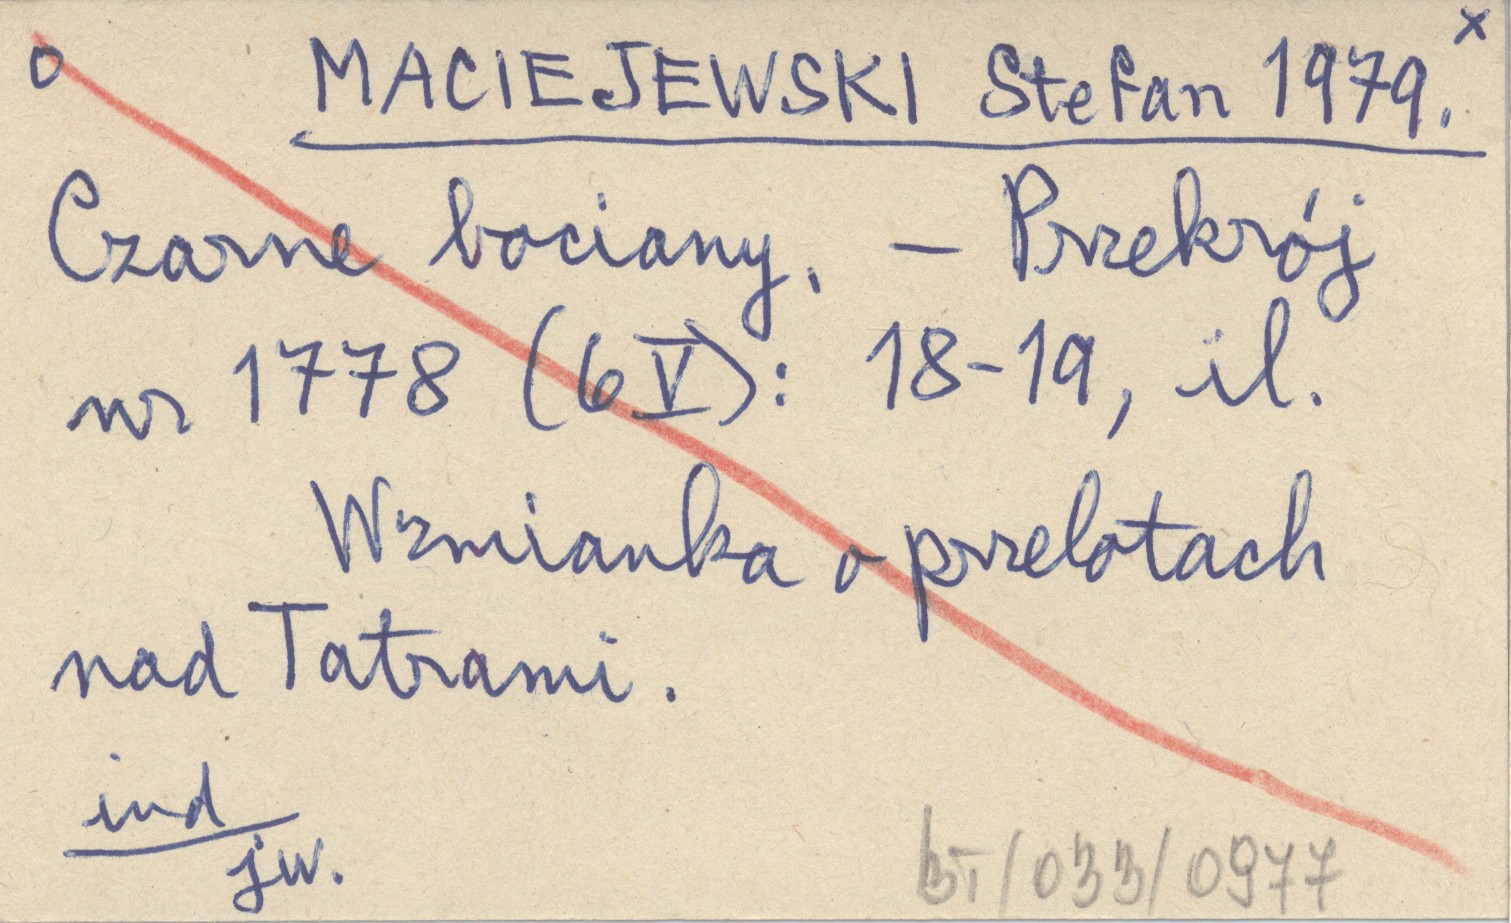 o MACIEJEWSKI Stefan 1979. x
Czarne bociany. – Przekrój
nr 1778 (6 V): 18-19, il.
Wzmianka o przelotach
nad Tatrami.
ind
jw.
bT/033/0977